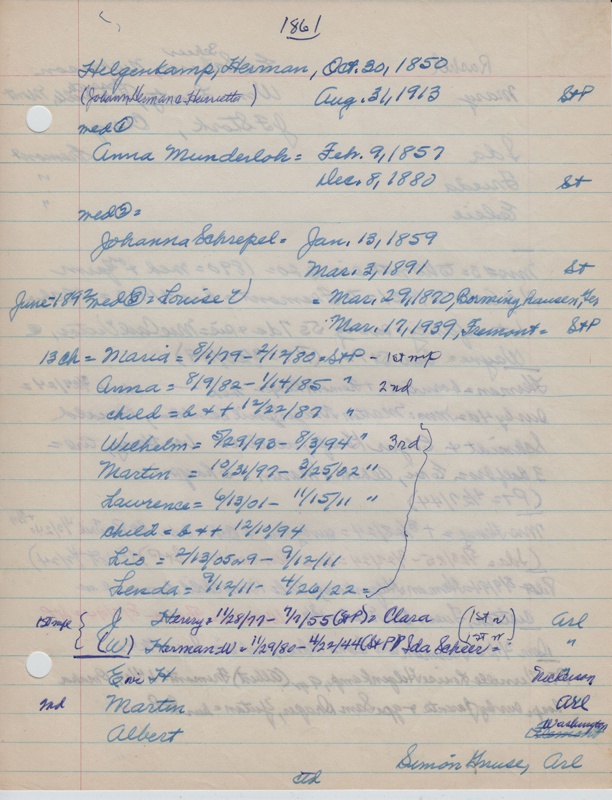 1861
Hilgenkamp, Herman, Oct. 30, 1850
(Johann Hermann Harriette) Aug. 31, 1913 StP
med ①
Anna Munderloh = Feb. 9, 1857
Dec. 8, 1880 St
med ② =
Johanna Schrepel = Jan. 13, 1859
Mar. 3, 1891 St
June-1892 med ③ = Louise V = Mar. 29, 1870,
Mar. 17, 1939, Fremont = StP
13 ch = Maria = 8/1/79 - 2/12/80 = StP - 1st
Anna = 8/9/82 - 1/14/85 " 2nd
child = b + t 12/22/87 "
Wilhelm = 5/29/93 - 8/3/94 " 3rd
Martin = 10/31/97 - 3/25/02 "
Lawrence = 6/13/01 - 11/15/11 "
child = b + t 12/10/94
Lio = 2/13/05 - 9/12/11
Lenda = 9/12/11 - 4/26/22 =
1st J Henry = 11/28/77 - 7/7/55 (StP) = Clara (1st n) Arl
(W) Herman-W = 11/29/80 - 4/22/44 (StP) Ida Scheer = 1st n "
H Nickerson
2nd Martin Arl
Albert Washington
Simon Kruse, Arl